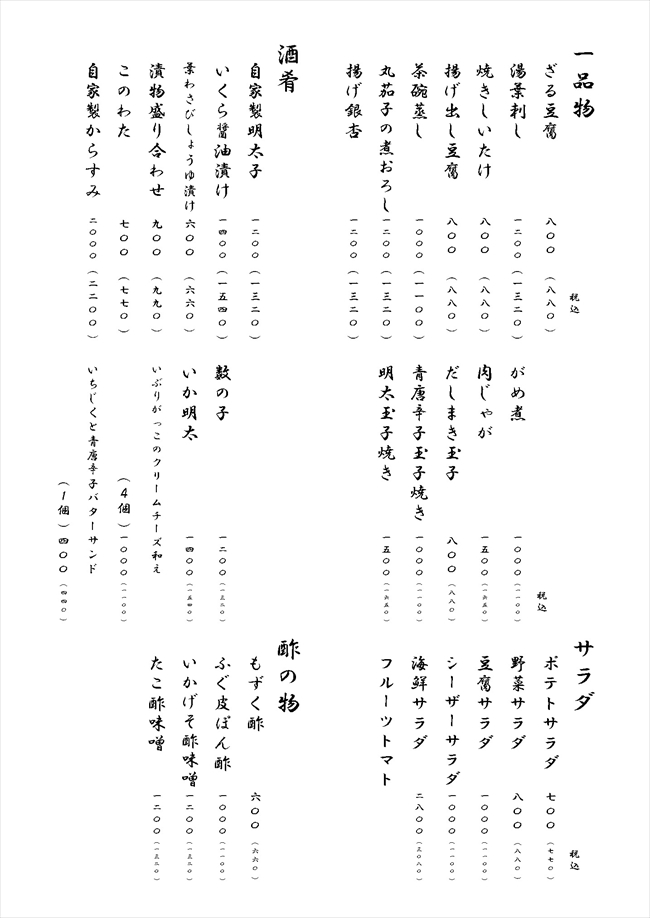 一品物
税込
ざる豆腐 八〇〇（八八〇）
湯葉刺し 一二〇〇（一三二〇）
焼きしいたけ 八〇〇（八八〇）
揚げ出し豆腐 八〇〇（八八〇）
茶碗蒸し 一〇〇〇（一一〇〇）
丸茄子の煮おろし 一二〇〇（一三二〇）
揚げ銀杏 一二〇〇（一三二〇）
税込
がめ煮 一〇〇〇（一一〇〇）
肉じゃが 一五〇〇（一六五〇）
だしまき玉子 八〇〇（八八〇）
青唐辛子玉子焼き 一〇〇〇（一一〇〇）
明太玉子焼き 一五〇〇（一六五〇）
酒肴
自家製明太子 一二〇〇（一三二〇）
いくら醤油漬け 一四〇〇（一五四〇）
葉わさびしょうゆ漬け 六〇〇（六六〇）
漬物盛り合わせ 九〇〇（九九〇）
このわた 七〇〇（七七〇）
自家製からすみ 二〇〇〇（二二〇〇）
数の子 一二〇〇（一三二〇）
いか明太 一四〇〇（一五四〇）
いぶりがっこのクリームチーズ和え
（4個）一〇〇〇（一一〇〇）
いちじくと青唐辛子バターサンド
（1個）四〇〇（四四〇）
サラダ
税込
ポテトサラダ 七〇〇（七七〇）
野菜サラダ 八〇〇（八八〇）
豆腐サラダ 一〇〇〇（一一〇〇）
シーザーサラダ 一〇〇〇（一一〇〇）
海鮮サラダ 二八〇〇（三〇八〇）
フルーツトマト
酢の物
もずく酢 六〇〇（六六〇）
ふぐ皮ぽん酢 一〇〇〇（一一〇〇）
いかげそ酢味噌 一二〇〇（一三二〇）
たこ酢味噌 一二〇〇（一三二〇）